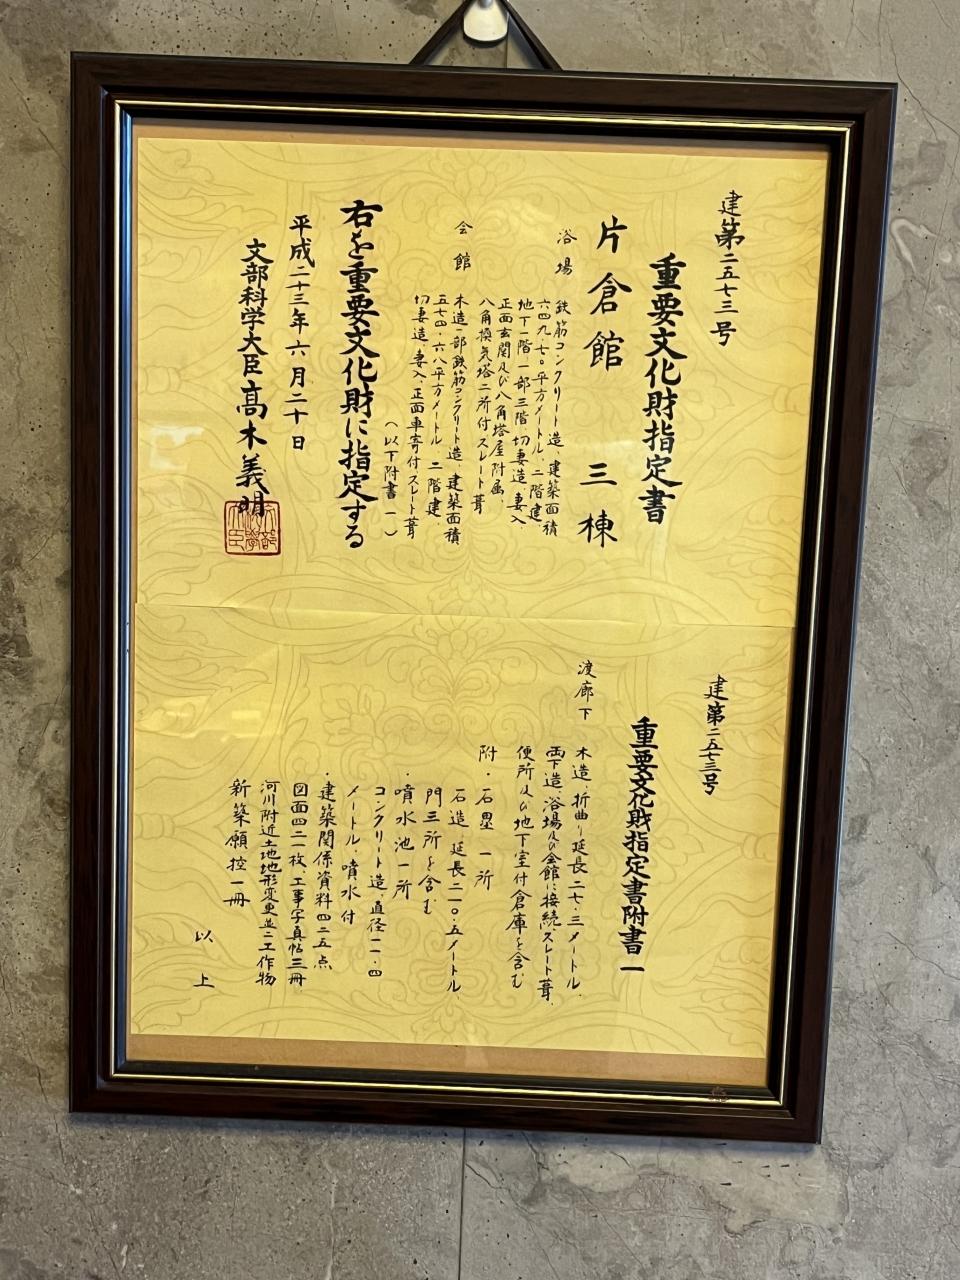 建第二五七三号
重要文化財指定書
片倉館 三棟
浴場
鉄筋コンクリート造、建築面積
六四九・七〇平方メートル、二階建、
地下一階、一部三階、切妻造、妻入、
正面玄関及び八角塔屋附属、
八角換気塔二所付、スレート葺
会館
木造一部鉄筋コンクリート造、建築面積
五七四・六八平方メートル、二階建、
切妻造、妻入、正面車寄付、スレート葺
(以下附書一)
右を重要文化財に指定する
平成二十三年六月二十日
文部科学大臣 髙木義明
建第二五七三号
重要文化財指定書附書一
渡廊下
木造、折曲り延長二七・三メートル、
両下造、浴場及び会館に接続、スレート葺、
便所及び地下室付倉庫を含む
附・石塁 一所
石造、延長二一〇・五メートル、
門三所を含む
・噴水池一所
コンクリート造、直径一一・四
メートル、噴水付
・建築関係資料四二五点
図面四二一枚、工事写真帖三冊、
河川附近土地地形変更並ニ工作物
新築願控一冊
以上